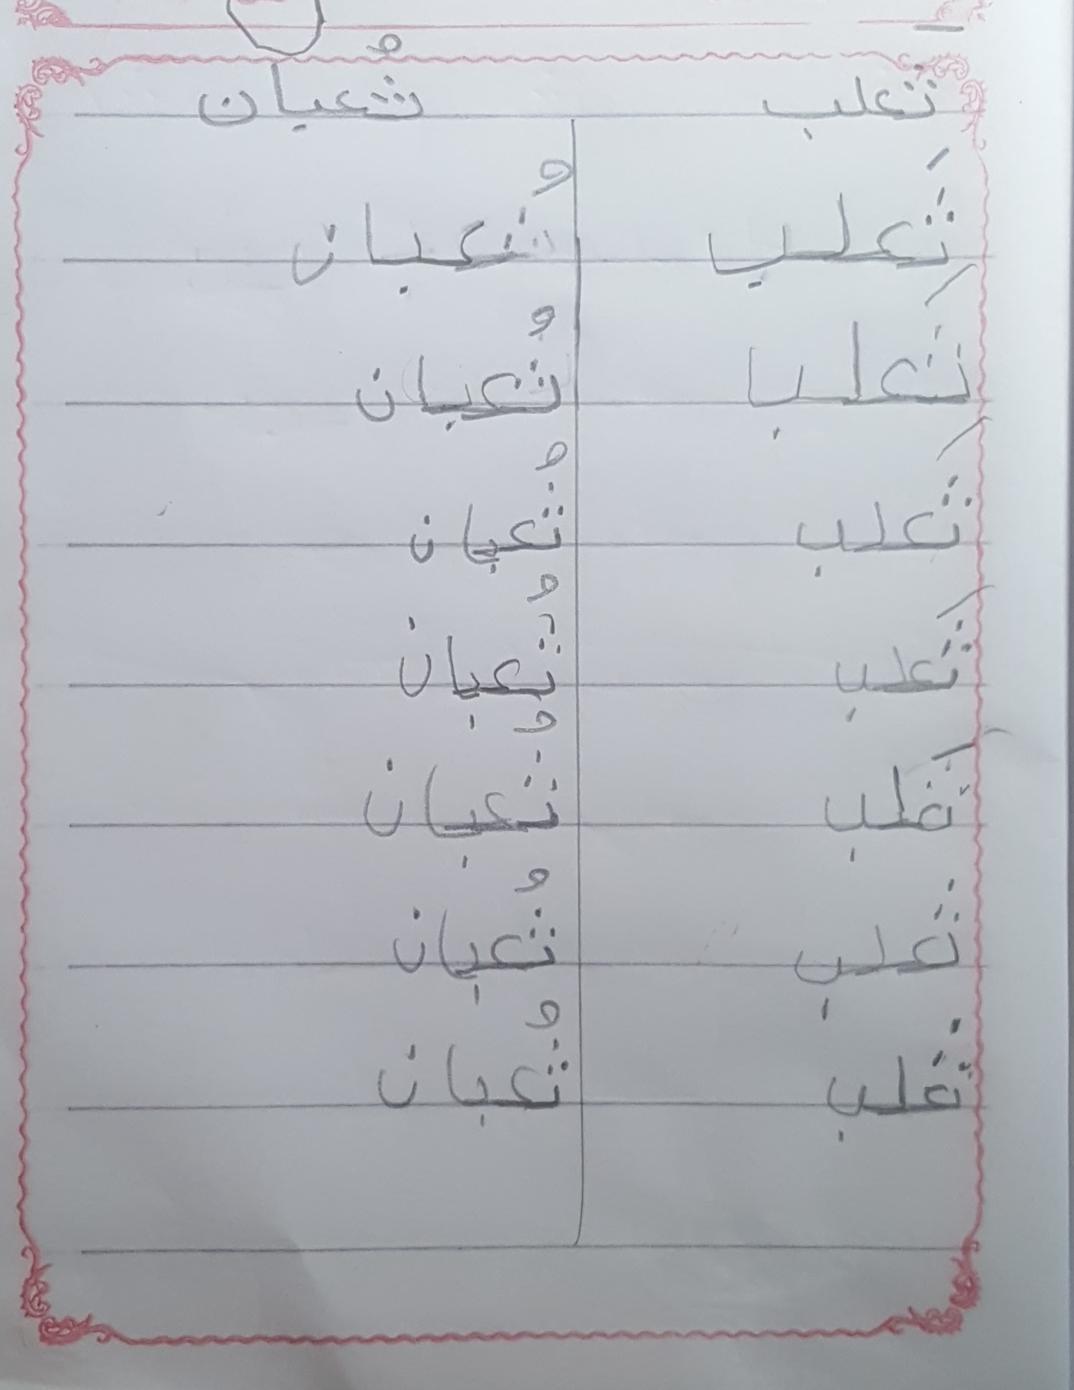 ثعلب ثُعبان
ثَعلب ثُعبان
ثَعلب ثُعبان
ثَعلب ثُعبان
ثَعلب ثُعبان
ثَعلب ثُعبان
ثعلب ثُعبان
ثعلب ثُعبان